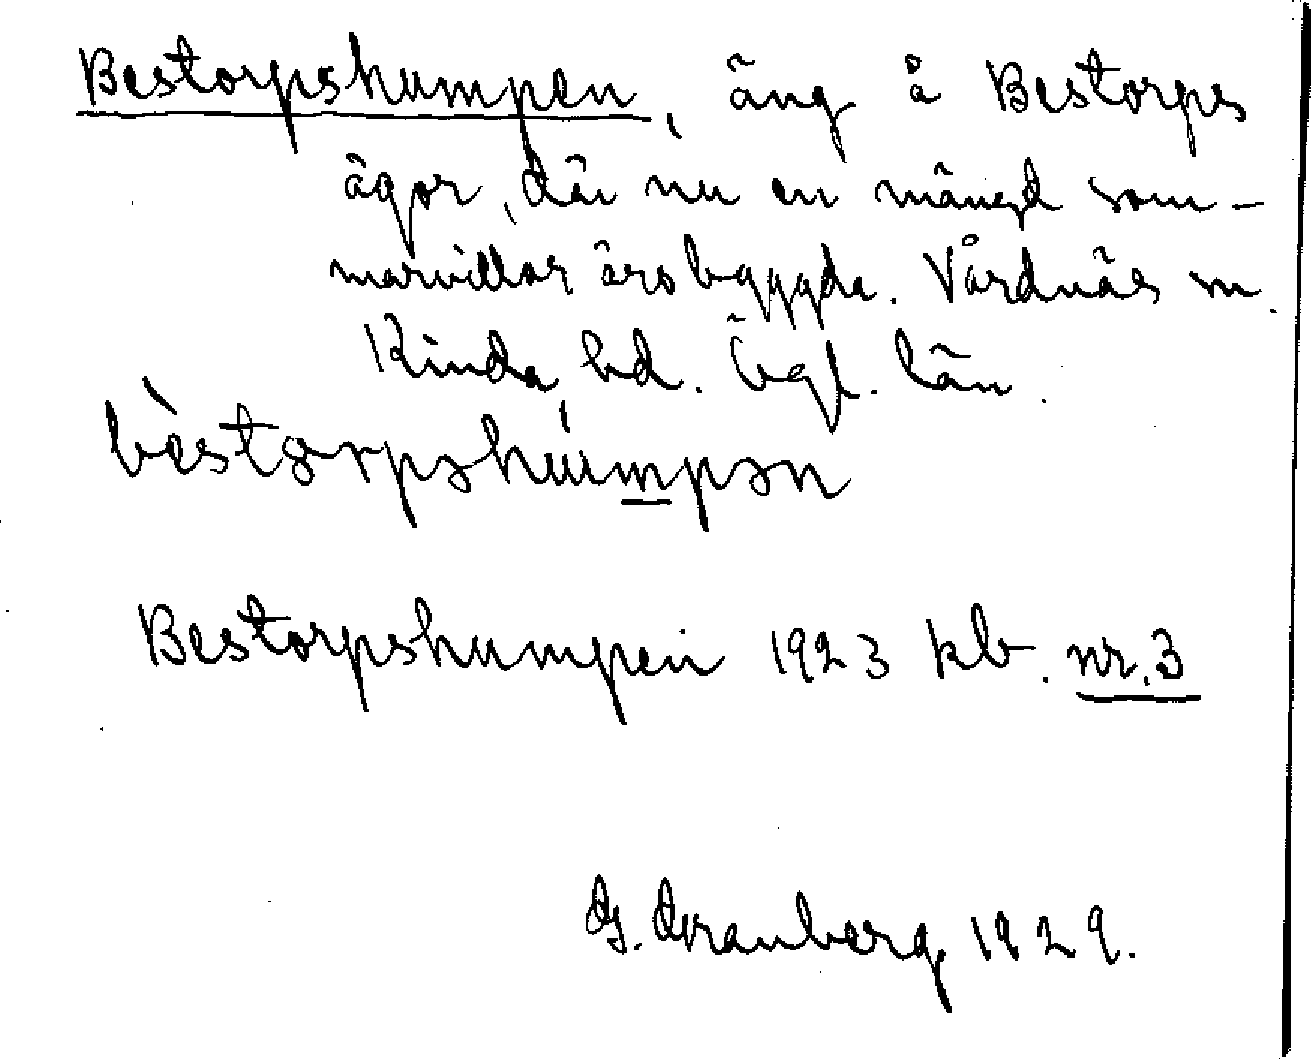 Bestorpshumpen, äng å Bestorps
ägor, där nu en mängd som-
marvillor äro byggda. Vårdnäs sn.
Kinda hd. Ögl. län.
bèstɵrpshúmpən
Bestorpshumpen 1923 kb. nr. 3
G. Granberg 1929.